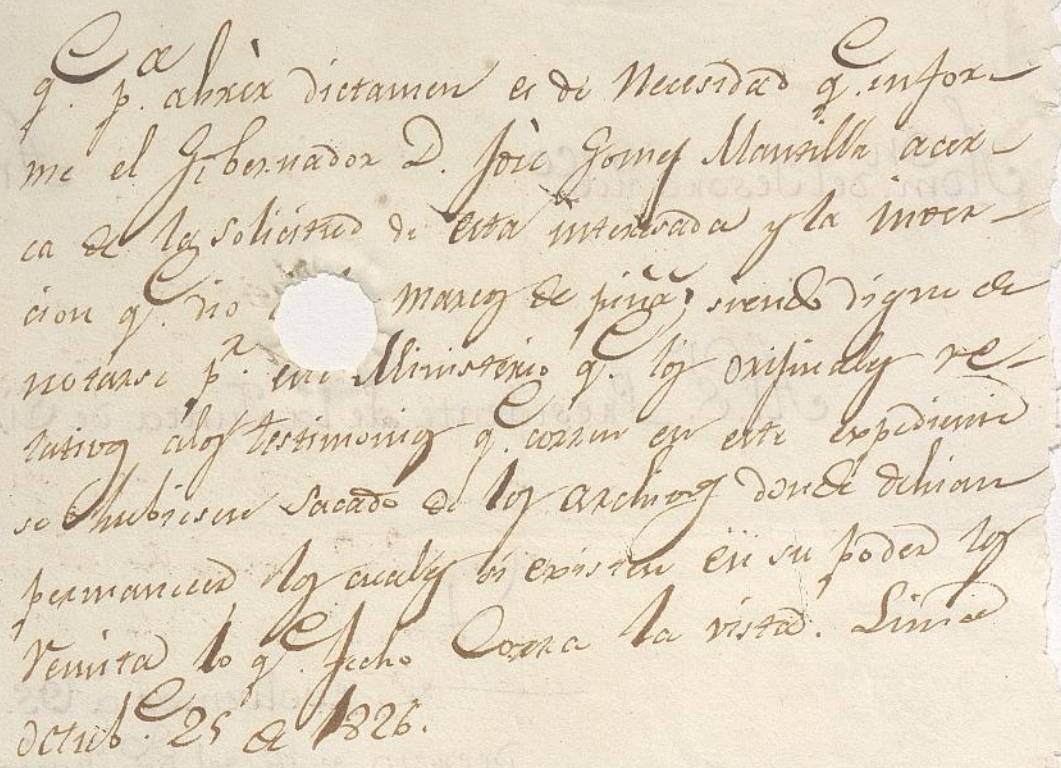 q.e p.a abrir dictamen es de Necesidad q.e infor-
me el Gobernador D. José Gomes Mansilla acer-
ca de la solicitud de esta interesada y la inver-
cion q.e dio marcos de piña, siendo digno de
notarse p.r este Ministerio q.e los originales re-
lativos alos testimonios q.e corren en este expediente
se hubiesen sacado de los archivos donde debian
permanecer los cuales si existen en su poder los
remita lo q.e fecho Corra la vista. Lima
Octub.e 25 de 1826.